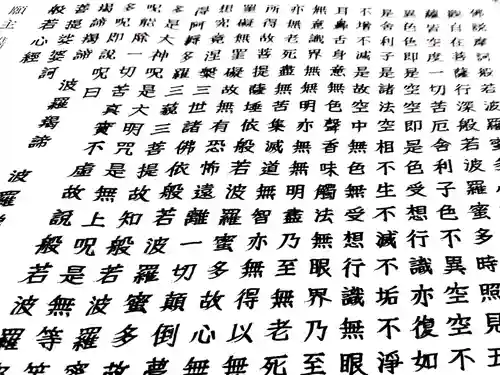 觀自在菩薩行深般若波羅蜜多時照見五
蘊皆空度一切苦厄舍利子色不異空空不
異色色即是空空即是色受想行識亦復如
是舍利子是諸法空相不生不滅不垢不淨
不增不減是故空中無色無受想行識無眼
耳鼻舌身意無色聲香味觸法無眼界乃至
無意識界無無明亦無無明盡乃至無老死
亦無老死盡無苦集滅道無智亦無得以無
所得故菩提薩埵依般若波羅蜜多故心無
罣礙無罣礙故無有恐怖遠離一切顛倒夢
想究竟涅槃三世諸佛依般若波羅蜜多故
得阿耨多羅三藐三菩提故知般若波羅蜜
多是大神呪是大明咒是無上呪是無等等
呪能除一切苦真實不虛故說般若波羅
多呪即說呪曰
揭諦 波羅揭諦 波羅
菩提娑婆訶
心經